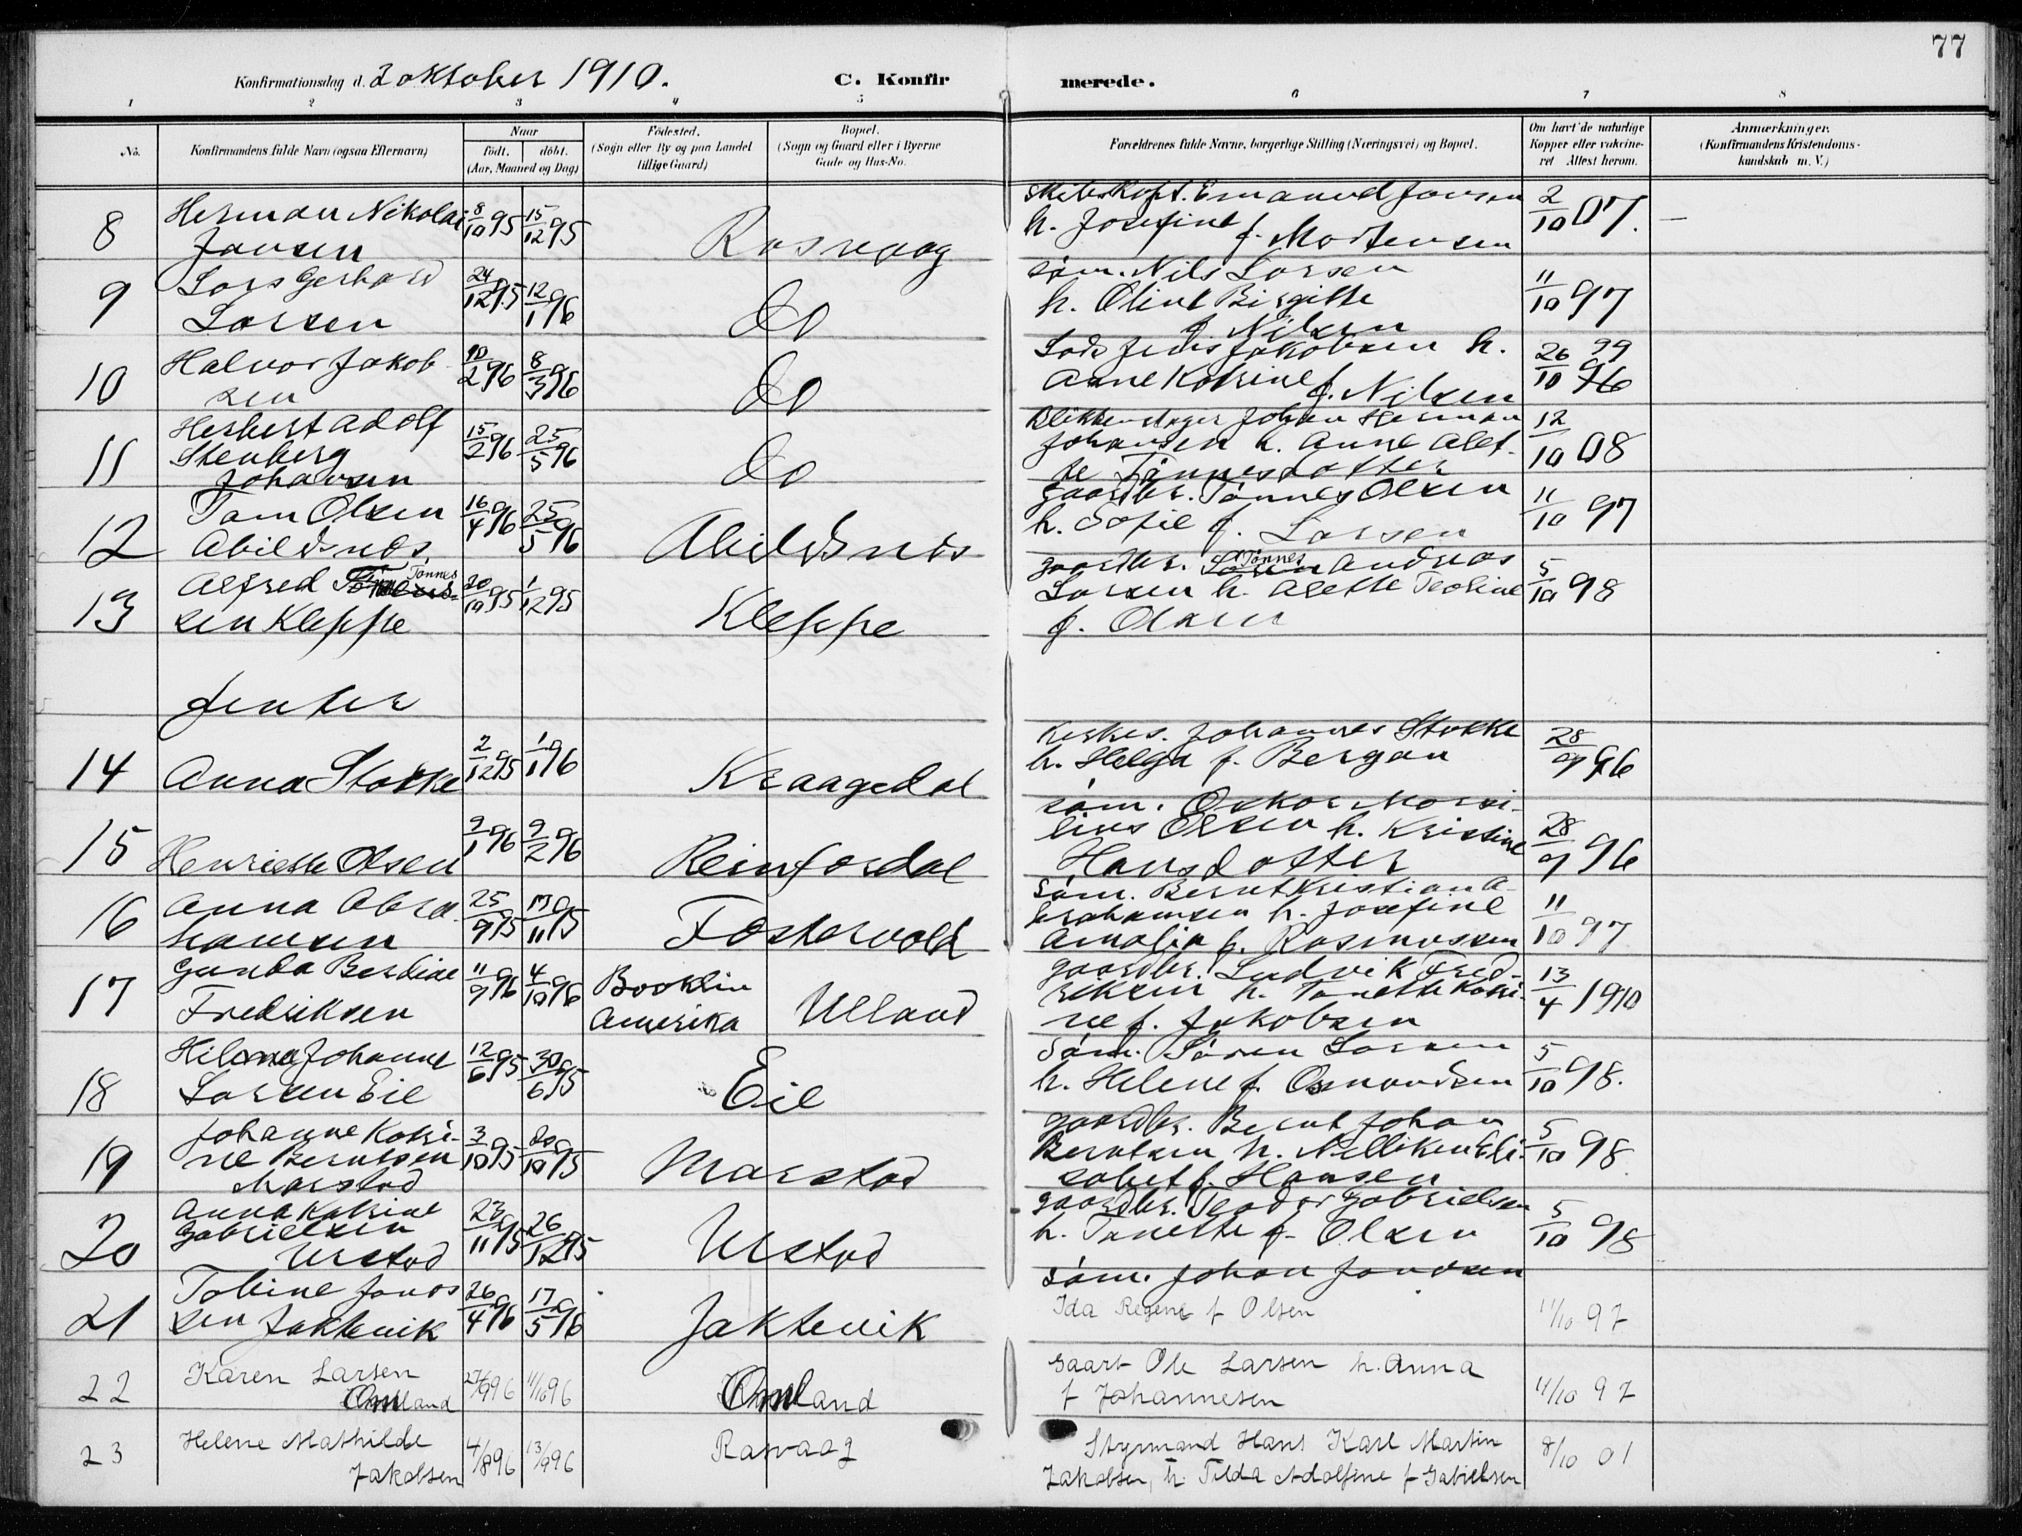 77
Konfirmationsdag d. 2 oktober 1910. C. Konfirmerede.
1 2 3 4 5 6 7 8
No. Konfirmandens fulde Navn (ogsaa Efternavn) Naar født. døbt. (Aar, Maaned og Dag) Fødested. (Sogn eller By og paa Landet tillige Gaard) Bopæl. (Sogn og Gaard eller i Byerne Gade og Hus-No. Forældrenes fulde Navne, borgerlige Stilling (Næringsvei) og Bopæl. Om havt de naturlige Kopper eller vakcineret. Attest herom. Anmærkninger. (Konfirmandens Kristendomskundskab m. V.)
8 Herman Nikolai Jansen 8/10 95 15/12 95 Rasvaag Emanuel Jansen h. Josefine f. Mortensen 2/10 07. —
9 Lars Gerhard Larsen 24/12 95 12/1 96 do søm. Nils Larsen h. Oline Birgitte f. Nilsen 11/10 97
10 Halvor Jakobsen 10/2 96 8/3 96 do Lods Jens Jakobsen h. Anne Katrine f. Nilsen 26/10 99
11 Herbert Adolf Stenberg Johansen 15/2 96 25/5 96 do Blikkenslager Johan Herman Johansen h. Anne Alette Tønnesdatter 12/10 08
12 Tom Olsen Abildsnes 16/4 96 25/5 96 Abildsnes gaardbr. Tønnes Olsen h. Sofie f. Larsen 11/10 97
13 Alfred Tønnessen Kleppe 20/10 95 1/12 95 Kleppe gaardbr. Tønnes Andreas Larsen h. Alette Teoline f. Olsen 5/10 98
Jenter
14 Anna Stakke 2/12 95 1/1 96 Kraagedal kirkes. Johannes Stakke h. Helga f. Bergan 28/9 96
15 Henriette Olsen 9/1 96 9/2 96 Reinfosdal søm. Oskar Marsilius Olsen h. Kristine Hansdatter 28/9 96
16 Anna Abrahamsen 25/9 95 17/11 95 Fostervold søm. Bernt Kristian Abrahamsen h. Josefine Amalia f. Rasmussen 11/10 97
17 Gunda Berdine Fredriksen 11/9 96 4/10 96 Booklin Amerika Ulland gaardbr. Ludvik Fredriksen h. Tanette Katrine f. Jakobsen 13/4 1910
18 Hilma Johanne Larsen Eie 12/6 95 30/6 95 Eie Søm. Søren Larsen h. Helene f. Osmundsen 5/10 98.
19 Johanne Katrine Berntsen Marstad 3/10 95 20/10 95 Marstad gaardbr. Bernt Johan Berntsen h. Nelliken Elisabet f. Hansen 5/10 98
20 Anna Katrine Gabrielsen Urstad 23/11 95 26/12 95 Urstad gaardbr. Teodor Gabrielsen h. Tanette f. Olsen 5/10 98
21 Toline Janassen Jaktevik 26/4 96 17/5 96 Jaktevik søm. Johan Janassen Ida Regene f Olsen 11/10 97
22 Karen Larsen Omland 27/9 96 11/10 96 Omland Gaart. Ole Larsen h. Anna f Johannesen 11/10 97
23 Helene Mathilde Jakobsen 4/8 96 13/9 96 Rasvaag Styrmand Hans Karl Martin Jakobsen, h Tilda Adolfine f Gabrielsen 8/10 01